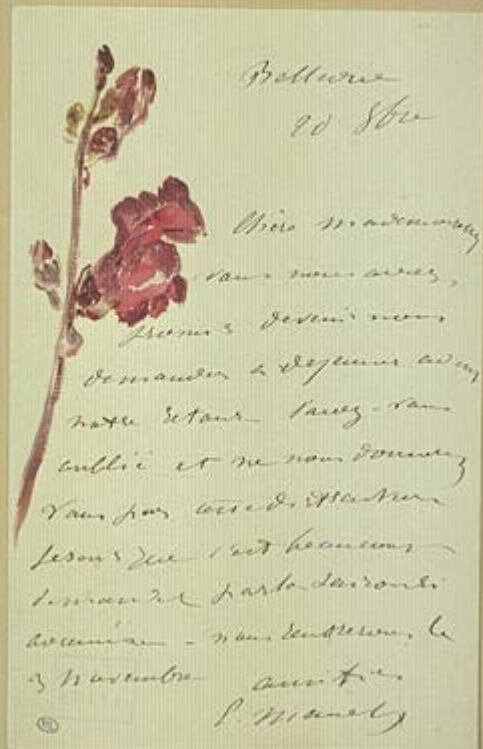 Bellevue
20 8bre
Chère mademoiselle
vous nous aviez
promis de venir nous
demander à déjeuner avant
notre retour L'avez-vous
oublié et ne nous donnerez
vous pas cette distraction
je sais que c'est beaucoup
demander par la saison si
avancée - nous rentrerons le
3 novembre
amitiés
E. Manet